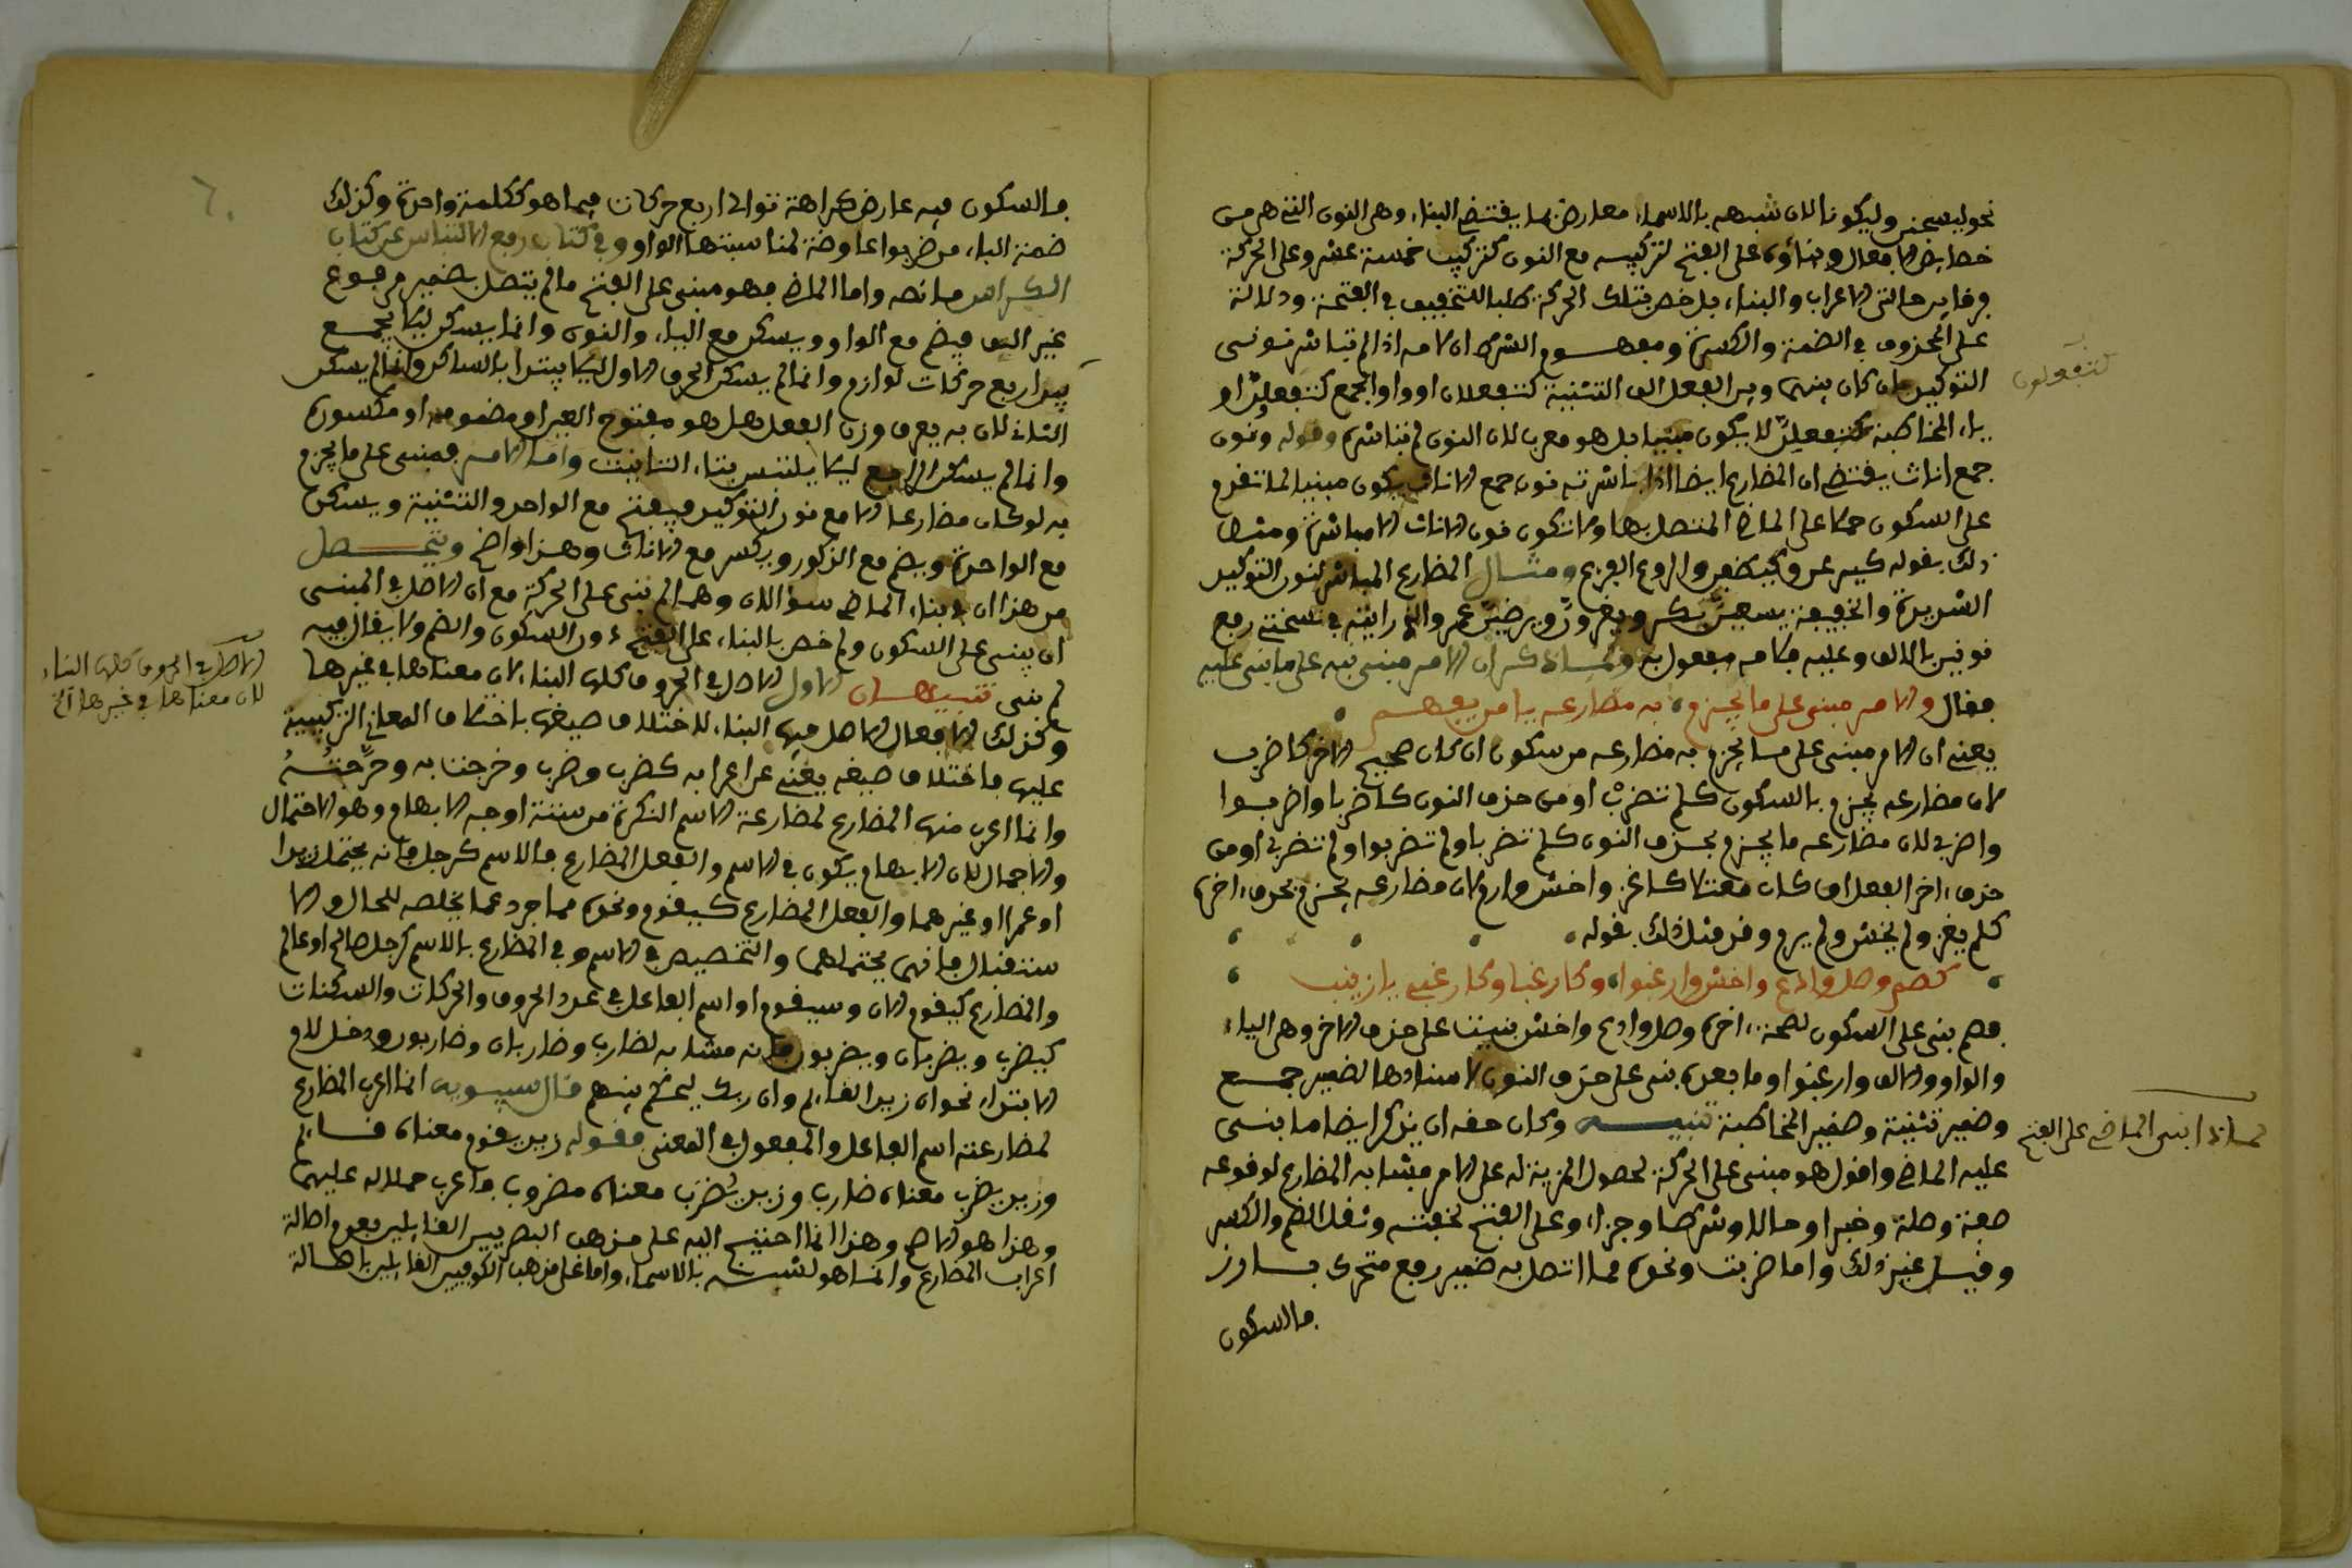 نحو ليسجنن وليكونا لان شبهه بالاسماء معارض بما يقتضي البناء وهي النون التي هي من
خصايص الافعال وبناؤه على الفتح لتركيبه مع النون كتركيب خمسة عشر وعلى الحركة
على المحذوف في الضمة والكسرة ومفهوم الشرط ان لامه اذا لم تباشر نونى
التوكيد بان كان بينهما وبين الفعل الف التثنية كتفعلان او واو الجمع كتفعلن او
كتفعلون
ياء المخاطبة كتفعلن لا يكون مبنيا بل هو معرب لان النون لم تباشره وقوله ونون
جمع اناث يقتضي ان المضارع ايضا اذا باشرته نون جمع الاناث يكون مبنيا لما تقدم
على السكون حملا على الماضي المتصل بها ولا تكون نون الاناث الا مباشرة ومثل
ذلك بقوله كيسجن وكيضفن والروع الفزع ومثال المضارع المباشر لنون التوكيد
الشديدة والخفيفة يسعين بكر ويغزون ويرضين عمرو
نونين بالالف وعليه كلامه مفعول به ولما ذكر ان الامر مبني نبه على ما بني عليه
فقال والامر مبني على ما يجزم به مضارعه يا من يفهم
يعني ان الامر مبني على ما يجزم به مضارعه من سكون ان كان صحيح الاخر كاضرب
لان مضارعه يجزم بالسكون كلم تضرب او من حذف النون كاضربا واضربوا
واضربي لان مضارعه ما يجزم بحذف النون كلم تضربا ولم تضربوا ولم تضربي او من
حذف اخر الفعل ان كان معتلا كاغز واخش وارم لان مضارعه يجزم بحذف اخره
كلم يغز ولم يخش ولم يرم وقد مثل ذلك بقوله
كصم وصل وادع واخش وارغبوا وكارغبا وكارغبي يا زينب
فصم بني على السكون لصحة اخره وصل وادع واخش بنيت على حذف الاخر وهي الياء
والواو والالف وارغبوا وما بعده بني على حذف النون لاسنادها لضمير جمع
وضمير تثنية وضمير المخاطبة تنبيه وكان حقه ان يذكر ايضا ما بني
لماذا بني الماضي على الفتح
عليه الماضي واقول هو مبني على الحركة لحصول المزية له على الامر بمشابهة المضارع لوقوعه
صفة وصلة وخبرا وحالا وشرطا وجزاء وعلى الفتح لخفته وثقل الضم والكسر
وقيل غير ذلك واما ضربت ونحوه مما اتصل به ضمير رفع متحرك بارز
فالسكون
فالسكون فيه عارض كراهة توالي اربع حركات فيما هو ككلمة واحدة وكذلك
ضمة الباء من ضربوا عارضة لمناسبتها الواو وفي كتاب رفع الالتباس عن كتاب
الكراس ما نصه واما الماضي فهو مبني على الفتح ما لم يتصل بضمير مرفوع
غير الف فيضم مع الواو ويسكن مع التاء والنون وانما يسكن ليلا يجمع
بين اربع حركات لوازم وانما لم يسكن الحرف الاول ليلا يبتدا بالساكن وانما لم يسكن
الثاني لان به يعرف وزن الفعل هل هو مفتوح العين او مضمومه او مكسوره
وانما لم يسكن الرابع ليلا يلتبس بتاء التانيث واما الامر فمبني على ما يجزم
به لو كان مضارعا الا مع نون التوكيد فيفتح مع الواحد والتثنية ويسكن
مع الواحدة ويضم مع الذكور ويكسر مع الاناث وهذا واضح ويتحصل
من هذا ان في بناء الماضي سؤالان وهما لم بني على الحركة مع ان الاصل في المبني
ان يبنى على السكون ولم خص بالبناء على الفتح دون السكون والضم ولا يقال فيه
لم بني تنبيهان الاول الاصل في الحروف كلها البناء لان معناها في غيرها
الاصل في الحروف كلها البناء
لان معناها في غيرها الخ
وكذلك الافعال الاصل فيها البناء لاختلاف صيغها باختلاف المعاني التركيبية
عليها فاختلاف صيغه يغني عن اعرابه كضرب وضرب وخرجت به
وانما اعرب منها المضارع لمضارعة الاسم النكرة من ستة اوجه الابهام وهو الاحتمال
والاجمال لان الابهام يكون في الاسم والفعل المضارع فالاسم كرجل فانه يحتمل زيدا
او عمرا او غيرهما والفعل المضارع كيقوم ونحوه مما جرد عما يخلصه للحال والا
ستقبال فانه يحتملهما والتخصيص في الاسم وفي المضارع بالاسم كرجل صالح او عالم
والمضارع كيقوم الان وسيقوم او اسم الفاعل في عدد الحروف والحركات والسكنات
كيضرب ويضربان ويضربون فانه مشابه لضارب وضاربان وضاربون ودخل لام
الابتداء نحو ان زيدا لقايم وان ربك ليحكم بينهم قال سيبويه انما اعرب المضارع
لمضارعته اسم الفاعل والمفعول في المعنى فقوله زيد يقوم معناه قايم
وزيد يضرب معناه ضارب وزيد يضرب معناه مضروب فاعرب حملا له عليهما
وهذا هو الاصح وهذا انما احتيج اليه على مذهب البصريين القايلين بعدم اصالة
اعراب المضارع وانما هو لشبهه بالاسماء واما على مذهب الكوفيين القايلين باصالة